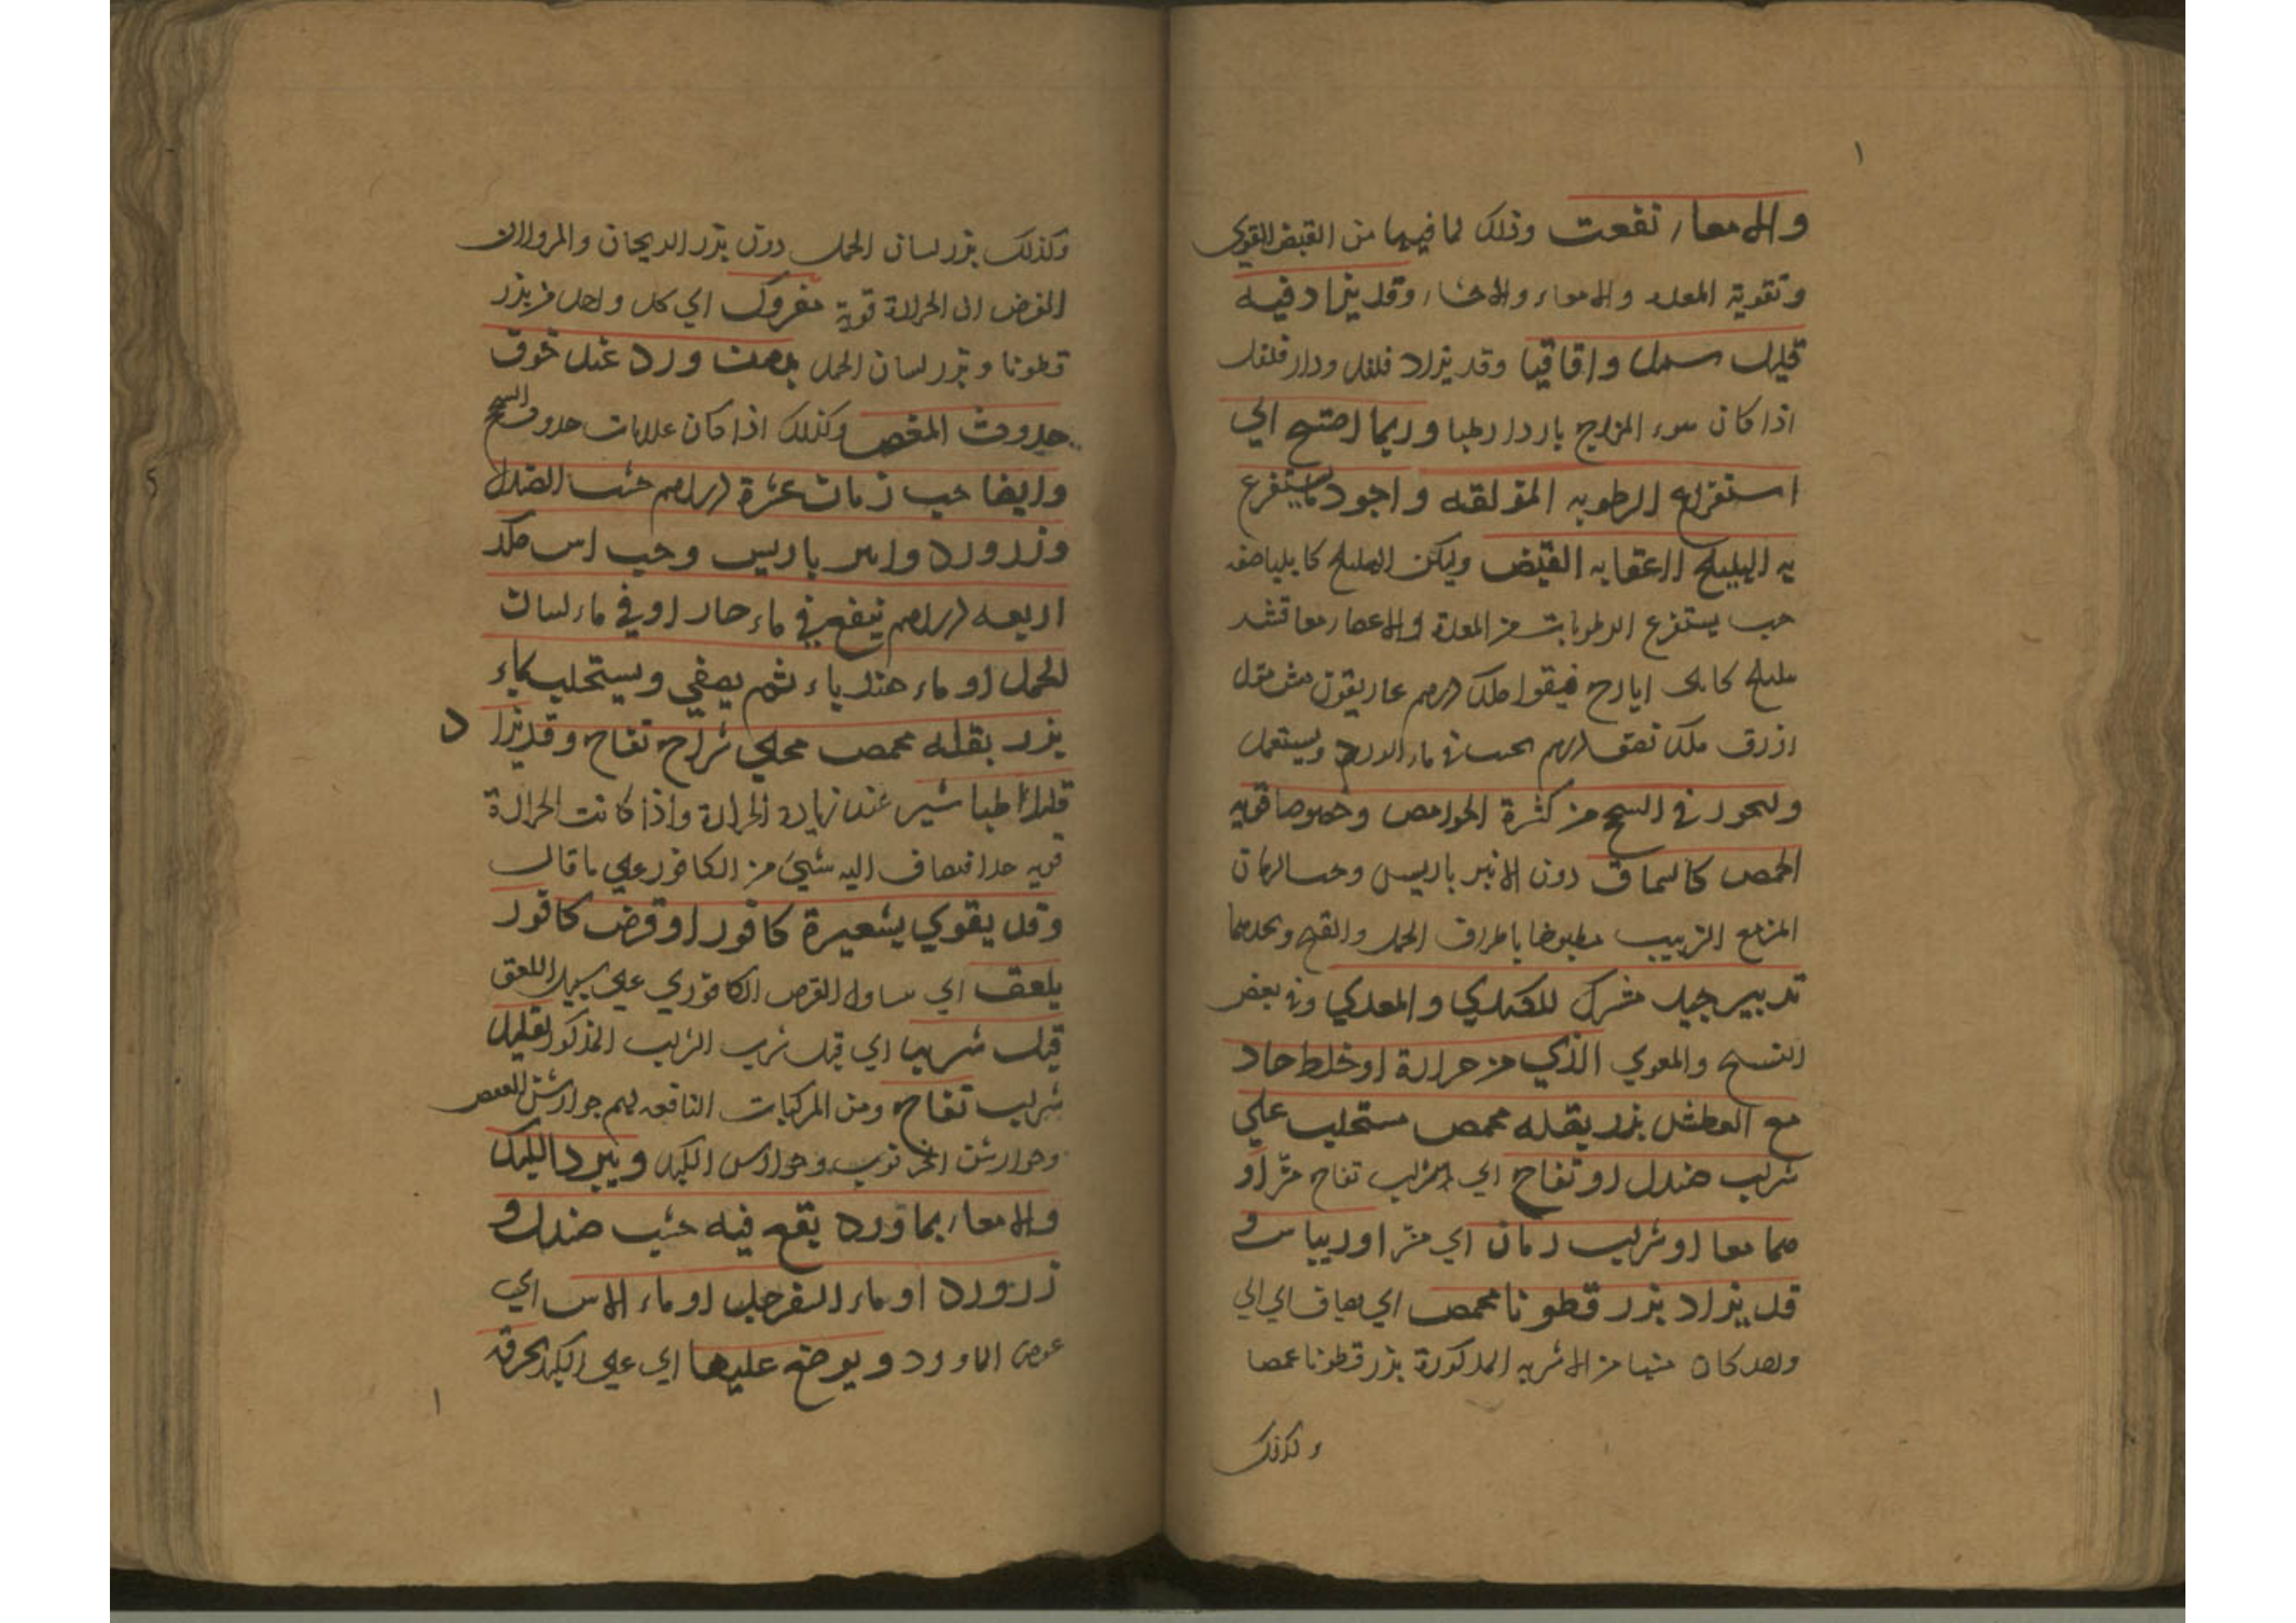 ١
والامعاء نفعت وذلك لما فيها من القبض القوي
وتقوية المعدة والامعاء والاحشاء وقد يزاد فيه
قليل واقاقيا وقد يزاد فلفل ودار فلفل
اذا كان سوء المزاج باردا رطبا وربما احتيج الي
استفراغ الرطوبه المزلقه واجود ما يستفرغ
به الهليلج لاعقابه القبض وليكن الهليلج كابليا صفه
حب يستفرغ الرطوبات من المعدة والامعاء معا قشر
هليلج كابلي ايارج فيقرا درهم غاريقون مقل
ازرق درهم يحبب في ماء ويستعمل
وليحذر في السحج من كثرة الحوامض وخصوصا قويه
الحمض كالسماق دون الانبر باريس وحب الرمان
المز مع الزبيب مطبوخا باطراف الحمل والقبج ونحوهما
تدبير جيد مشترك للكبدي والمعدي وفي بعض
النسخ والمعوي الذي من حرارة او خلط حاد
مع العطش بزر بقله محمص مستحلب علي
شراب صندل او تفاح اي شراب تفاح مز او
هما معا او شراب رمان اي مز او ريباس و
قد يزاد بزر قطونا محمص اي يضاف اي الي
كان من الاشربه المذكورة بزر قطونا محمصا
وكذلك
وكذلك بزر لسان الحمل دون بزر الريحان والمرو لان
الغرض ان الحرارة قوية مفروك اي كل واحد من بزر
قطونا وبزر لسان الحمل بدهن ورد عند خوف
حدوث المغص وكذلك اذا كان علامات حدوث السحج
وايضا حب رمان عشرة دراهم خشب الصندل
وزر ورد وانبر باريس وحب اس من كل
اربعه دراهم ينقع في ماء حار او في ماء لسان
الحمل او ماء هندباء ثم يصفي ويستحلب بماء
بزر بقله محمص محلي شراب تفاح وقد يزاد
قليل طباشير عند زيادة الحرارة واذا كانت الحرارة
قويه جدا فيضاف اليه شيئ من الكافور علي ما قال
وقد يقوي بشعيرة كافور او قرص كافور
يلعق اي القرص الكافوري علي سبيل اللعق
قبل شربها اي قبل شرب المذكور بقليل
شراب تفاح ومن المركبات النافعه لهم جوارشن
وجوارشن الخرنوب وجوارش ويبرد الكبد
والامعاء بماورد يقع فيه خشب صندل و
زر ورد او ماء السفرجل او ماء الاس اي
عوض الماورد ويوضع عليها اي علي الكبد بخرقه
١